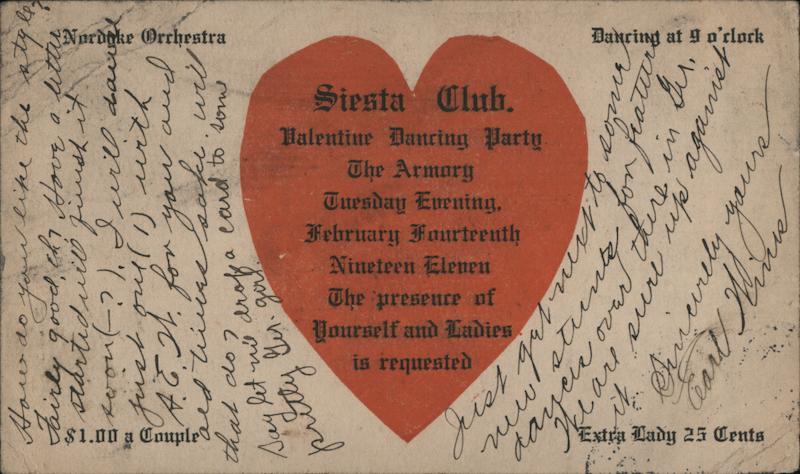 Nordyke Orchestra
Dancing at 9 o'clock
Siesta Club.
Valentine Dancing Party
The Armory
Tuesday Evening,
February Fourteenth
Nineteen Eleven
The presence of
Yourself and Ladies
is requested
$1.00 a Couple
Extra Lady 25 Cents
How do you like the style?
Fairly good, eh? Have a letter
started will finish it
soon (-?). I will dance
just one (1) with
A.E.H. for you and
old times sake. will
that do? drop a card to some
Say let me
pretty Gr. girl.
Just get next to some
new stunts for feature
dances over there in Gr.
We are sure up against
it.
Sincerely yours
Earl Hines